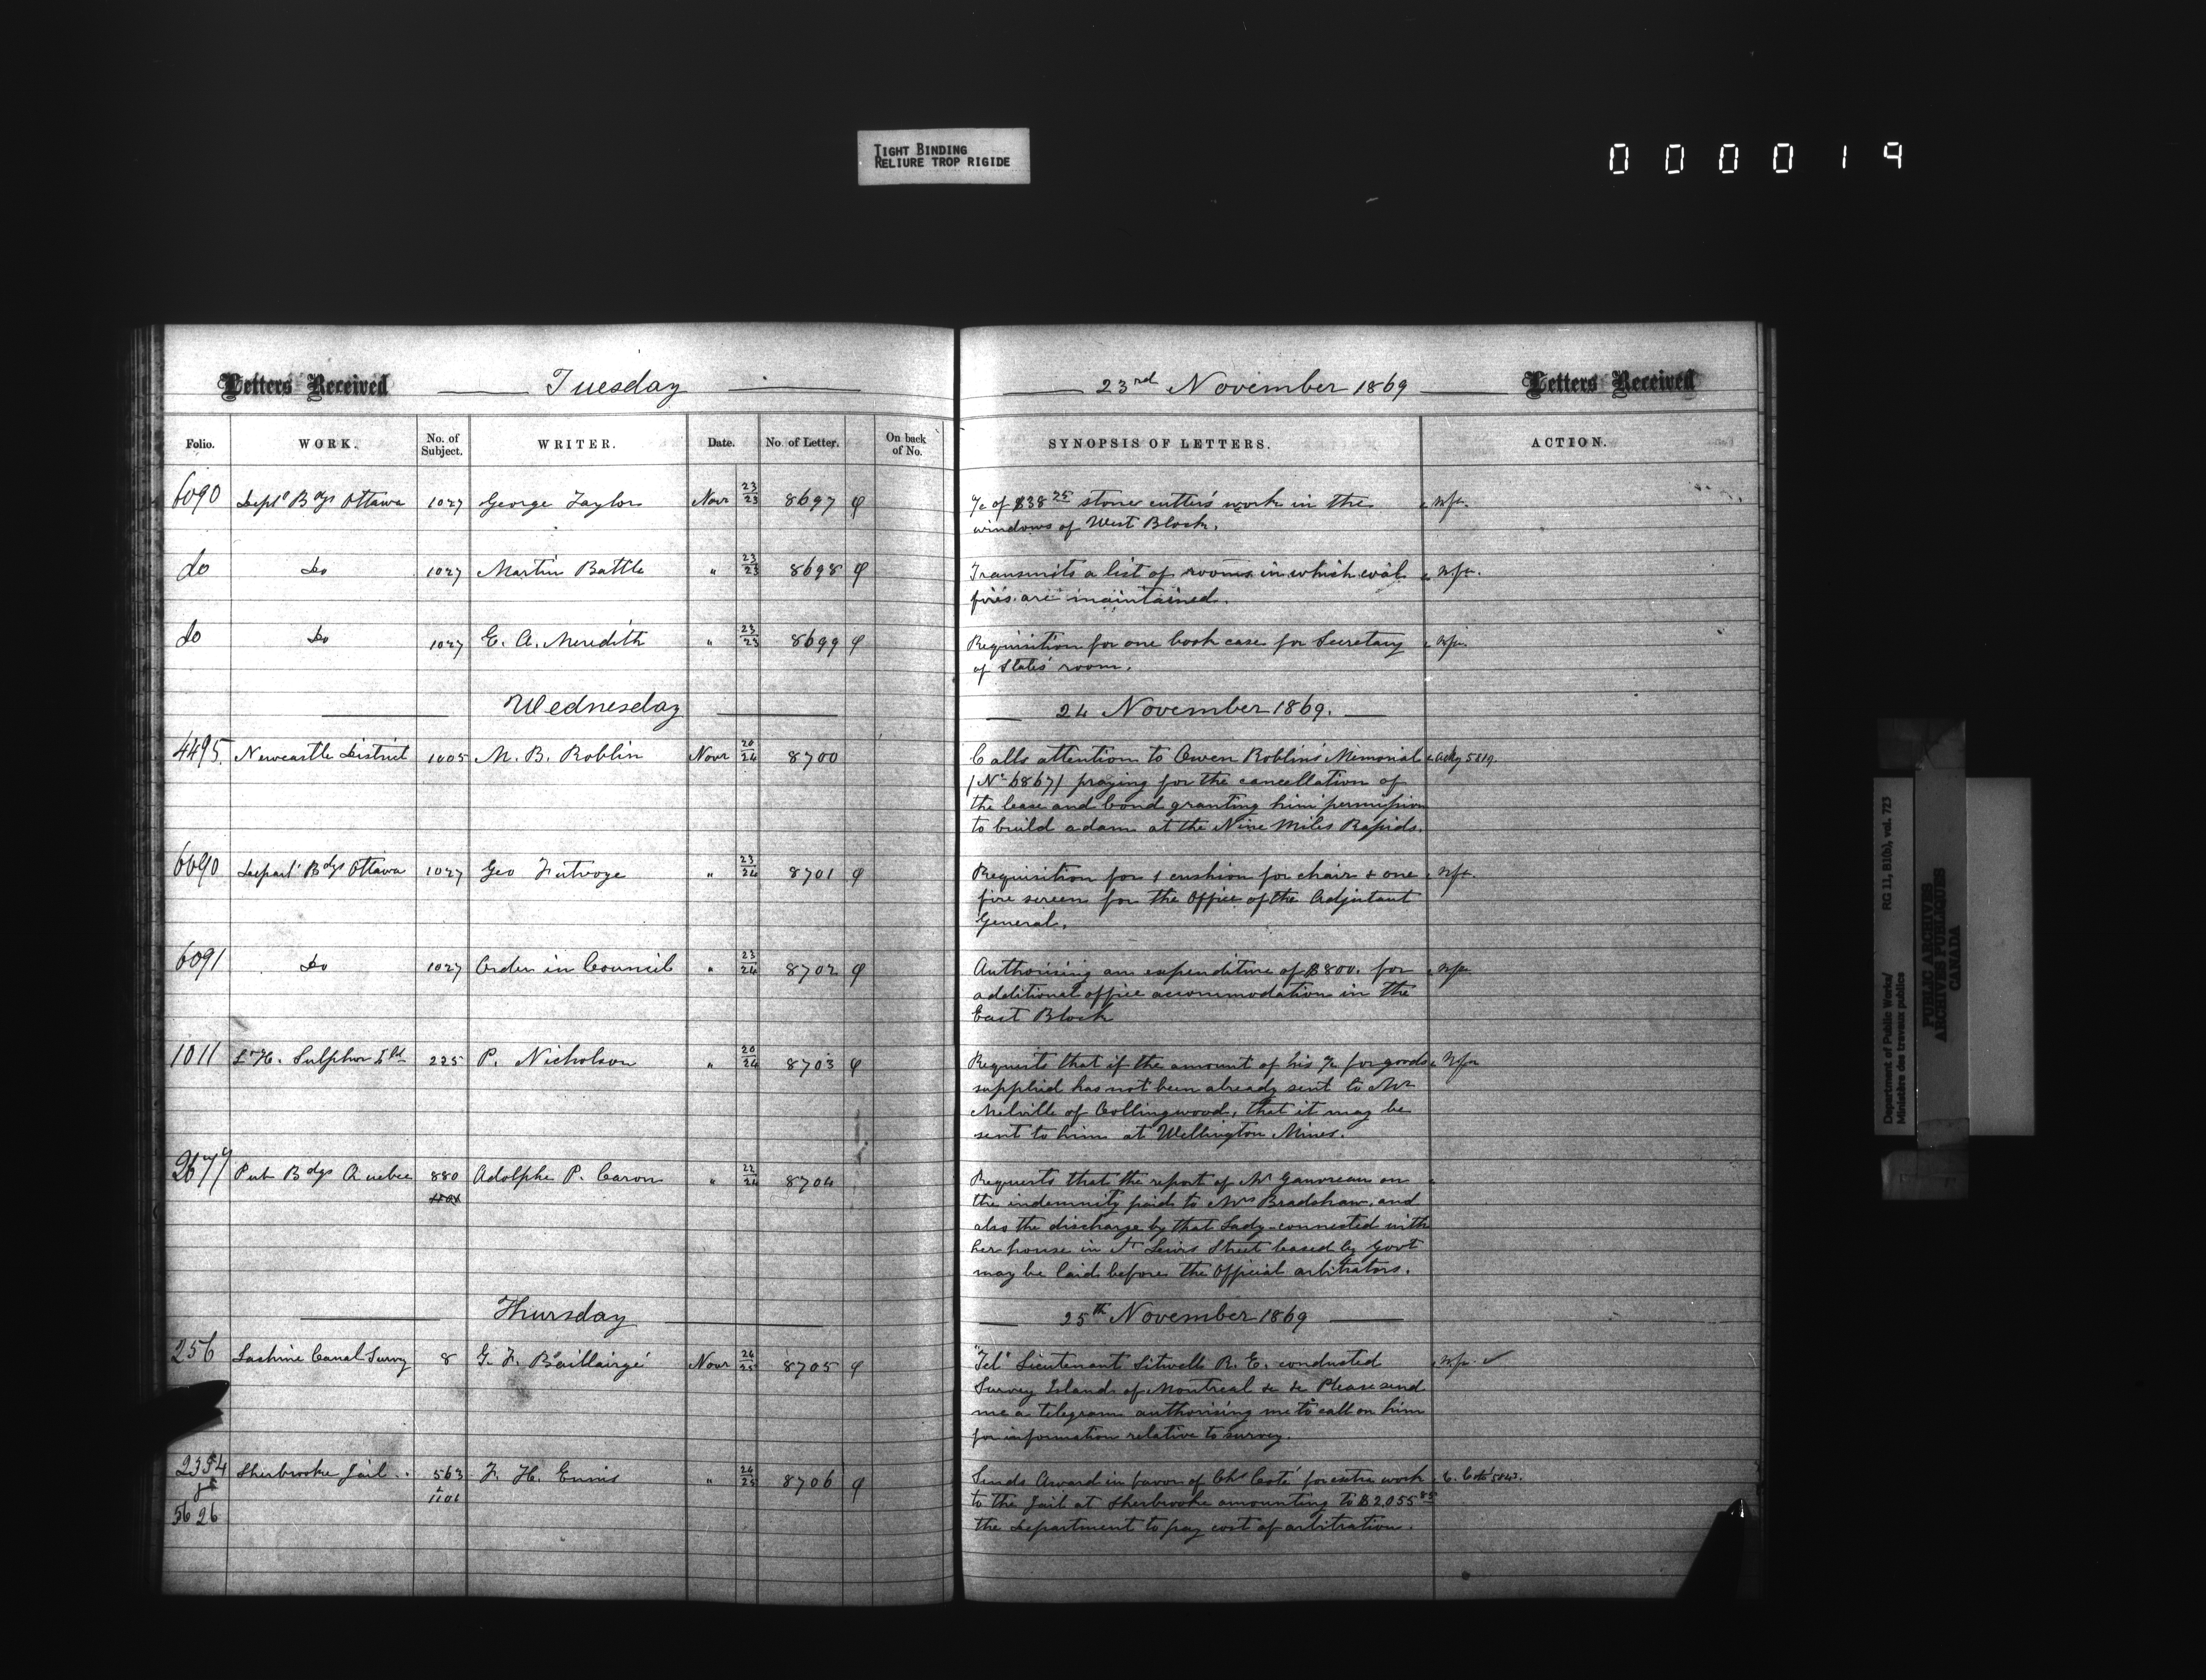 TIGHT BINDING
RELIURE TROP RIGIDE
000019
Letters Received Tuesday 23rd November 1869 Letters Received
Folio. WORK. No. of Subject. WRITER. Date. No. of Letter. On back of No. SYNOPSIS OF LETTERS. ACTION.
6090 Deptl Bdgs Ottawa 1027 George Taylor Novr 23/23 8697 φ a/c of $38 75 stone cutter's work in the
windows of West Block.
do Do 1027 Martin Battle " 23/23 8698 φ Transmits a list of rooms in which coal
fires are maintained.
do Do 1027 E. A. Meredith " 23/23 8699 φ Requisition for one book case for Secretary
of State's room.
Wednesday 24 November 1869.
4495 Newcastle District 1005 M. B. Roblin Novr 20/24 8700 Calls attention to Owen Roblin's Memorial Ackg 5819.
(No 6867) praying for the cancellation of
the lease and bond granting him permission
to build a dam at the Nine Miles Rapids.
6090 Depart Bdgs Ottawa 1027 Geo Futvoye " 23/24 8701 φ Requisition for 1 cushion for chair & one
fire screen for the Office of the Adjutant
General.
6091 Do 1027 Order in Council " 23/24 8702 φ Authorising an expenditure of $800. for
additional office accommodation in the
East Block
1011 L. H. Sulphur Isld 225 P. Nicholson " 20/24 8703 φ Requests that if the amount of his a/c for goods
supplied has not been already sent to Mr
Melville of Collingwood, that it may be
sent to him at Wellington Mines.
2679 Pub Bdgs Quebec 880 Adolphe P. Caron " 22/24 8704 Requests that the report of Mr Gauvreau on
the indemnity paid to Mrs Bradshaw and
also the discharge by that Lady connected with
her house in St Lewis Street leased by Govt
may be laid before the Official arbitrators.
Thursday 25th November 1869
256 Lachine Canal Survey 8 G. F. Baillairgé Novr 24/25 8705 φ "Tel" Lieutenant Sitwell R. E. conducted
Survey Island of Montreal &c &c Please send
me a telegram authorising me to call on him
for information relative to survey.
2354 Sherbrooke Jail 563 F. H. Ennis " 24/25 8706 φ Sends Award in favor of Chs Coté for extra work C. Coté
& 1101 to the Jail at Sherbrooke amounting to $2,055 85
5626 the Department to pay cost of arbitration.
Department of Public Works/ RG 11, B1(b), vol. 723
Ministère des travaux publics
PUBLIC ARCHIVES
ARCHIVES PUBLIQUES
CANADA